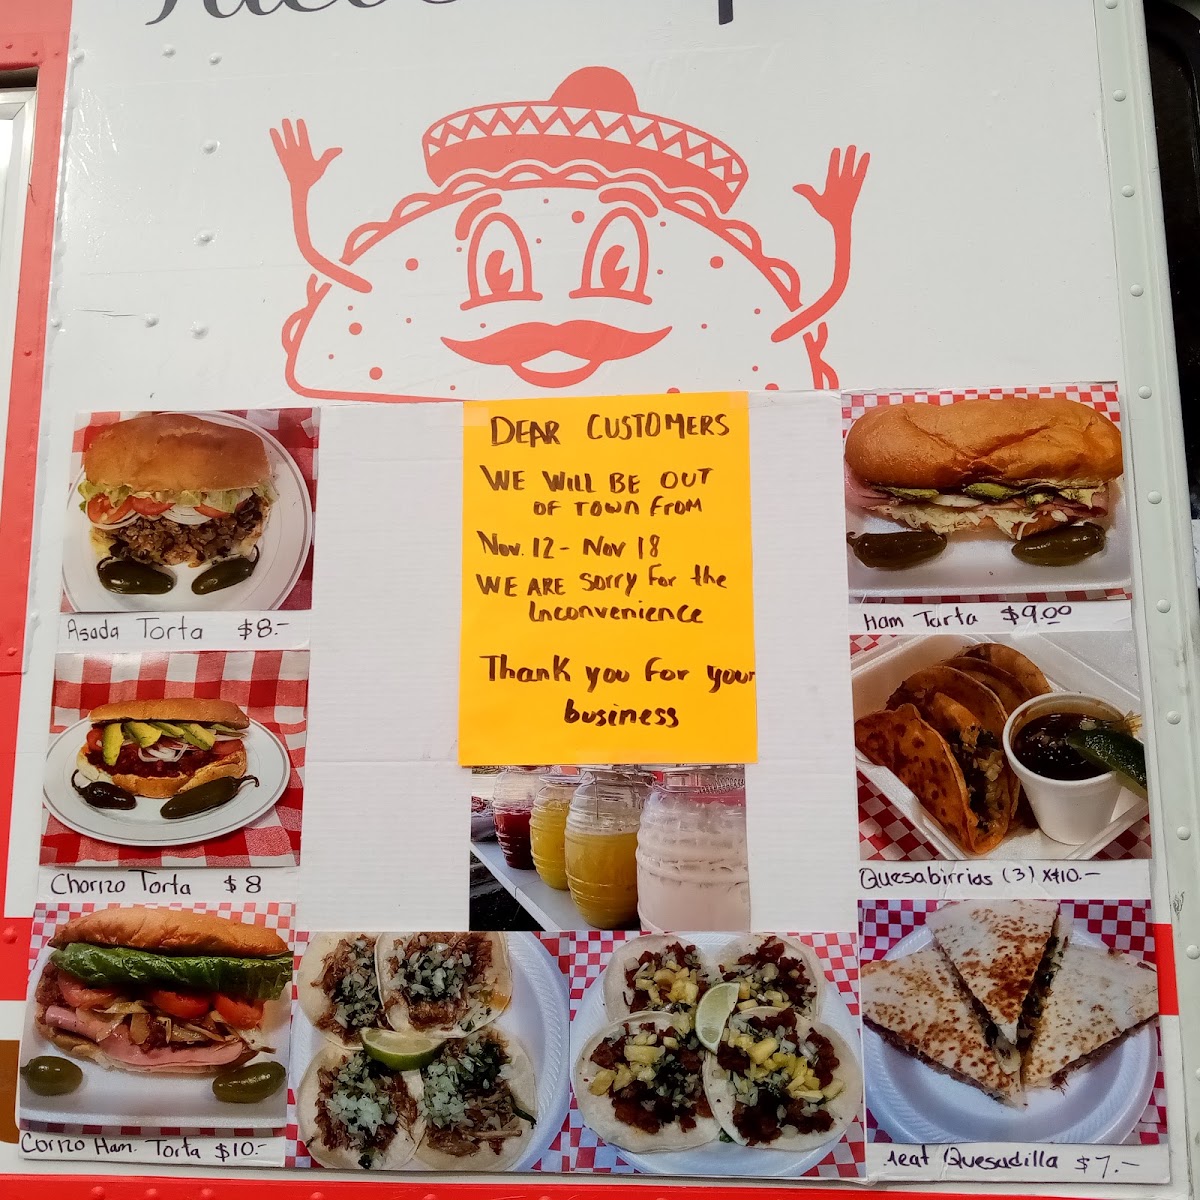 DEAR CUSTOMERS
WE WILL BE OUT
OF TOWN FROM
Nov. 12 - Nov 18
WE ARE sorry For the
Inconvenience
Thank you For your
business
Asada Torta $8.-
Ham Tarta $9.00
Chorizo Torta $8
Quesabirrias (3) x$10.-
Corizo Ham. Torta $10.-
Meat Quesadilla $7.-